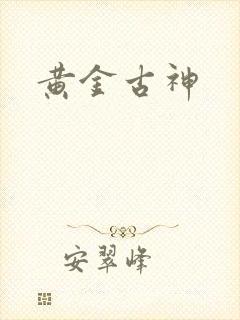 黄金古神
安翠峰